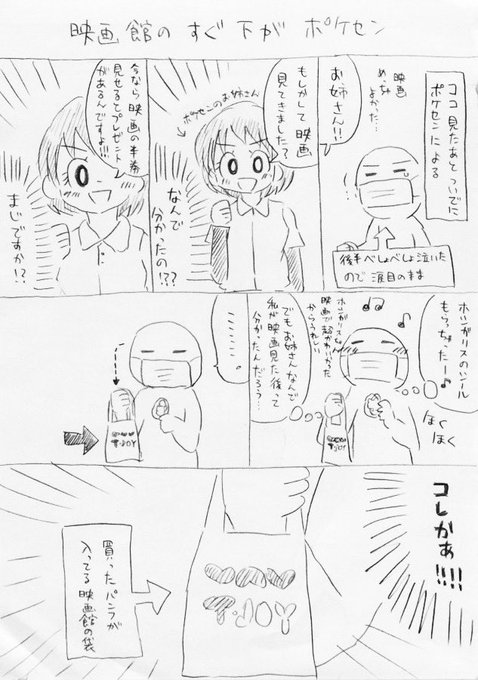 映画館のすぐ下がポケセン
ココ見たあとついでに
ポケセンによる
映画
めっちゃ
よかった…
後半べしょべしょ泣いた
ので涙目のまま
お姉さん!!
もしかして映画
見てきました?
ポケセンのお姉さん
なんで
分かったの!??
今なら映画の半券
見せるとプレゼント
があるんですよ!!!
まじですか!?
ホシガリスのシール
もらっちゃったー♪
ほく
ほく
ホシガリスちゃん
映画で超かわいかった
からうれしい
でもお姉さんなんで
私が映画見た後って
分かったんだろう…
T・JOY
………
T・JOY
コレかぁ!!!!
T・JOY
買ったパンフが
入ってる映画館の袋